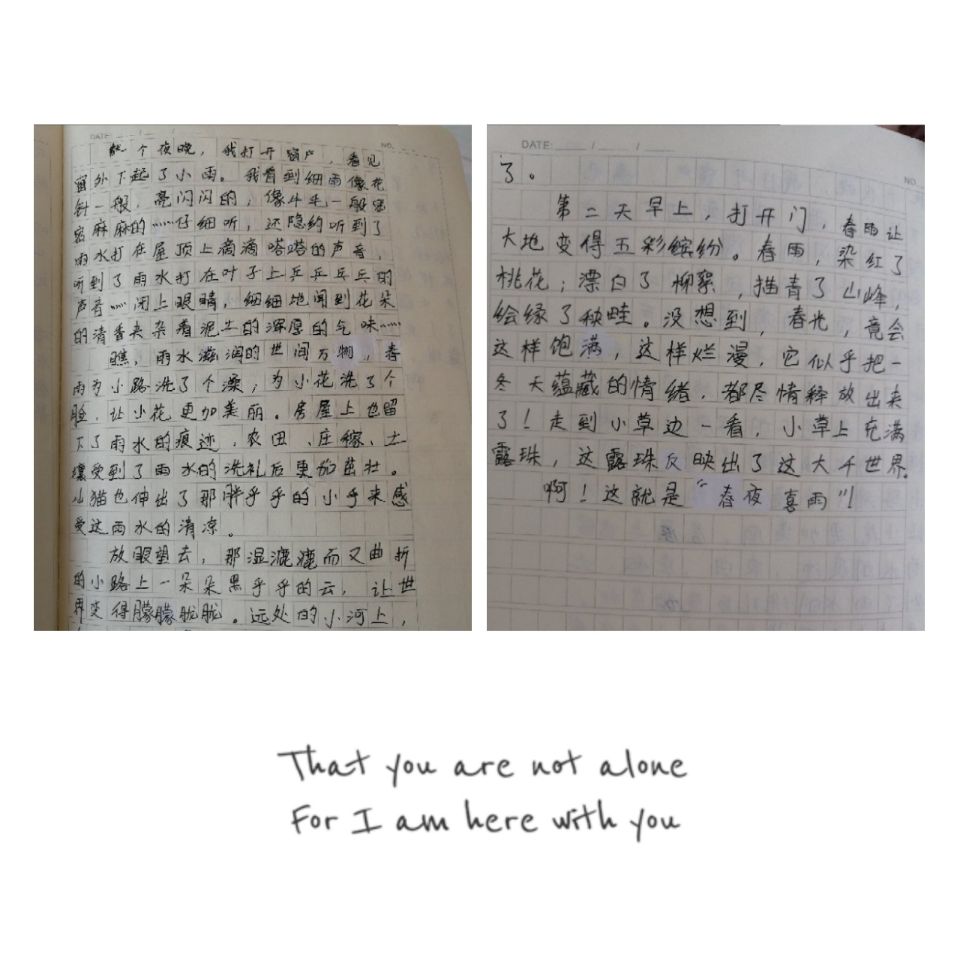 DATE: / /
NO.
个夜晚，我打开窗户，看见
窗外下起了小雨。我看到细雨像花
针一般，亮闪闪的，像牛毛一般密
密麻麻的……仔细听，还隐约听到了
雨水打在屋顶上滴滴嗒嗒的声音，
听到了雨水打在叶子上乒乒乓乓的
声音……闭上眼睛，细细地闻到花朵
的清香夹杂着泥土的浑厚的气味……
瞧，雨水滋润的世间万物，春
雨为小路洗了个澡，为小花洗了个
脸，让小花更加美丽。房屋上也留
下了雨水的痕迹，农田、庄稼、土
壤受到了雨水的洗礼后更加茁壮。
小猫也伸出了那胖乎乎的小手来感
受这雨水的清凉。
放眼望去，那湿漉漉而又曲折
的小路上一朵朵黑乎乎的云，让世
界变得朦朦胧胧。远处的小河上，
DATE: / /
NO
了。
第二天早上，打开门，春雨让
大地变得五彩缤纷。春雨，染红了
桃花；漂白了柳絮，描青了山峰，
绘绿了秧畦。没想到，春光，竟会
这样饱满，这样烂漫，它似乎把一
冬天蕴藏的情绪，都尽情释放出来
了！走到小草边一看，小草上充满
露珠，这露珠反映出了这大千世界。
啊！这就是“春夜喜雨”！
That you are not alone
For I am here with you